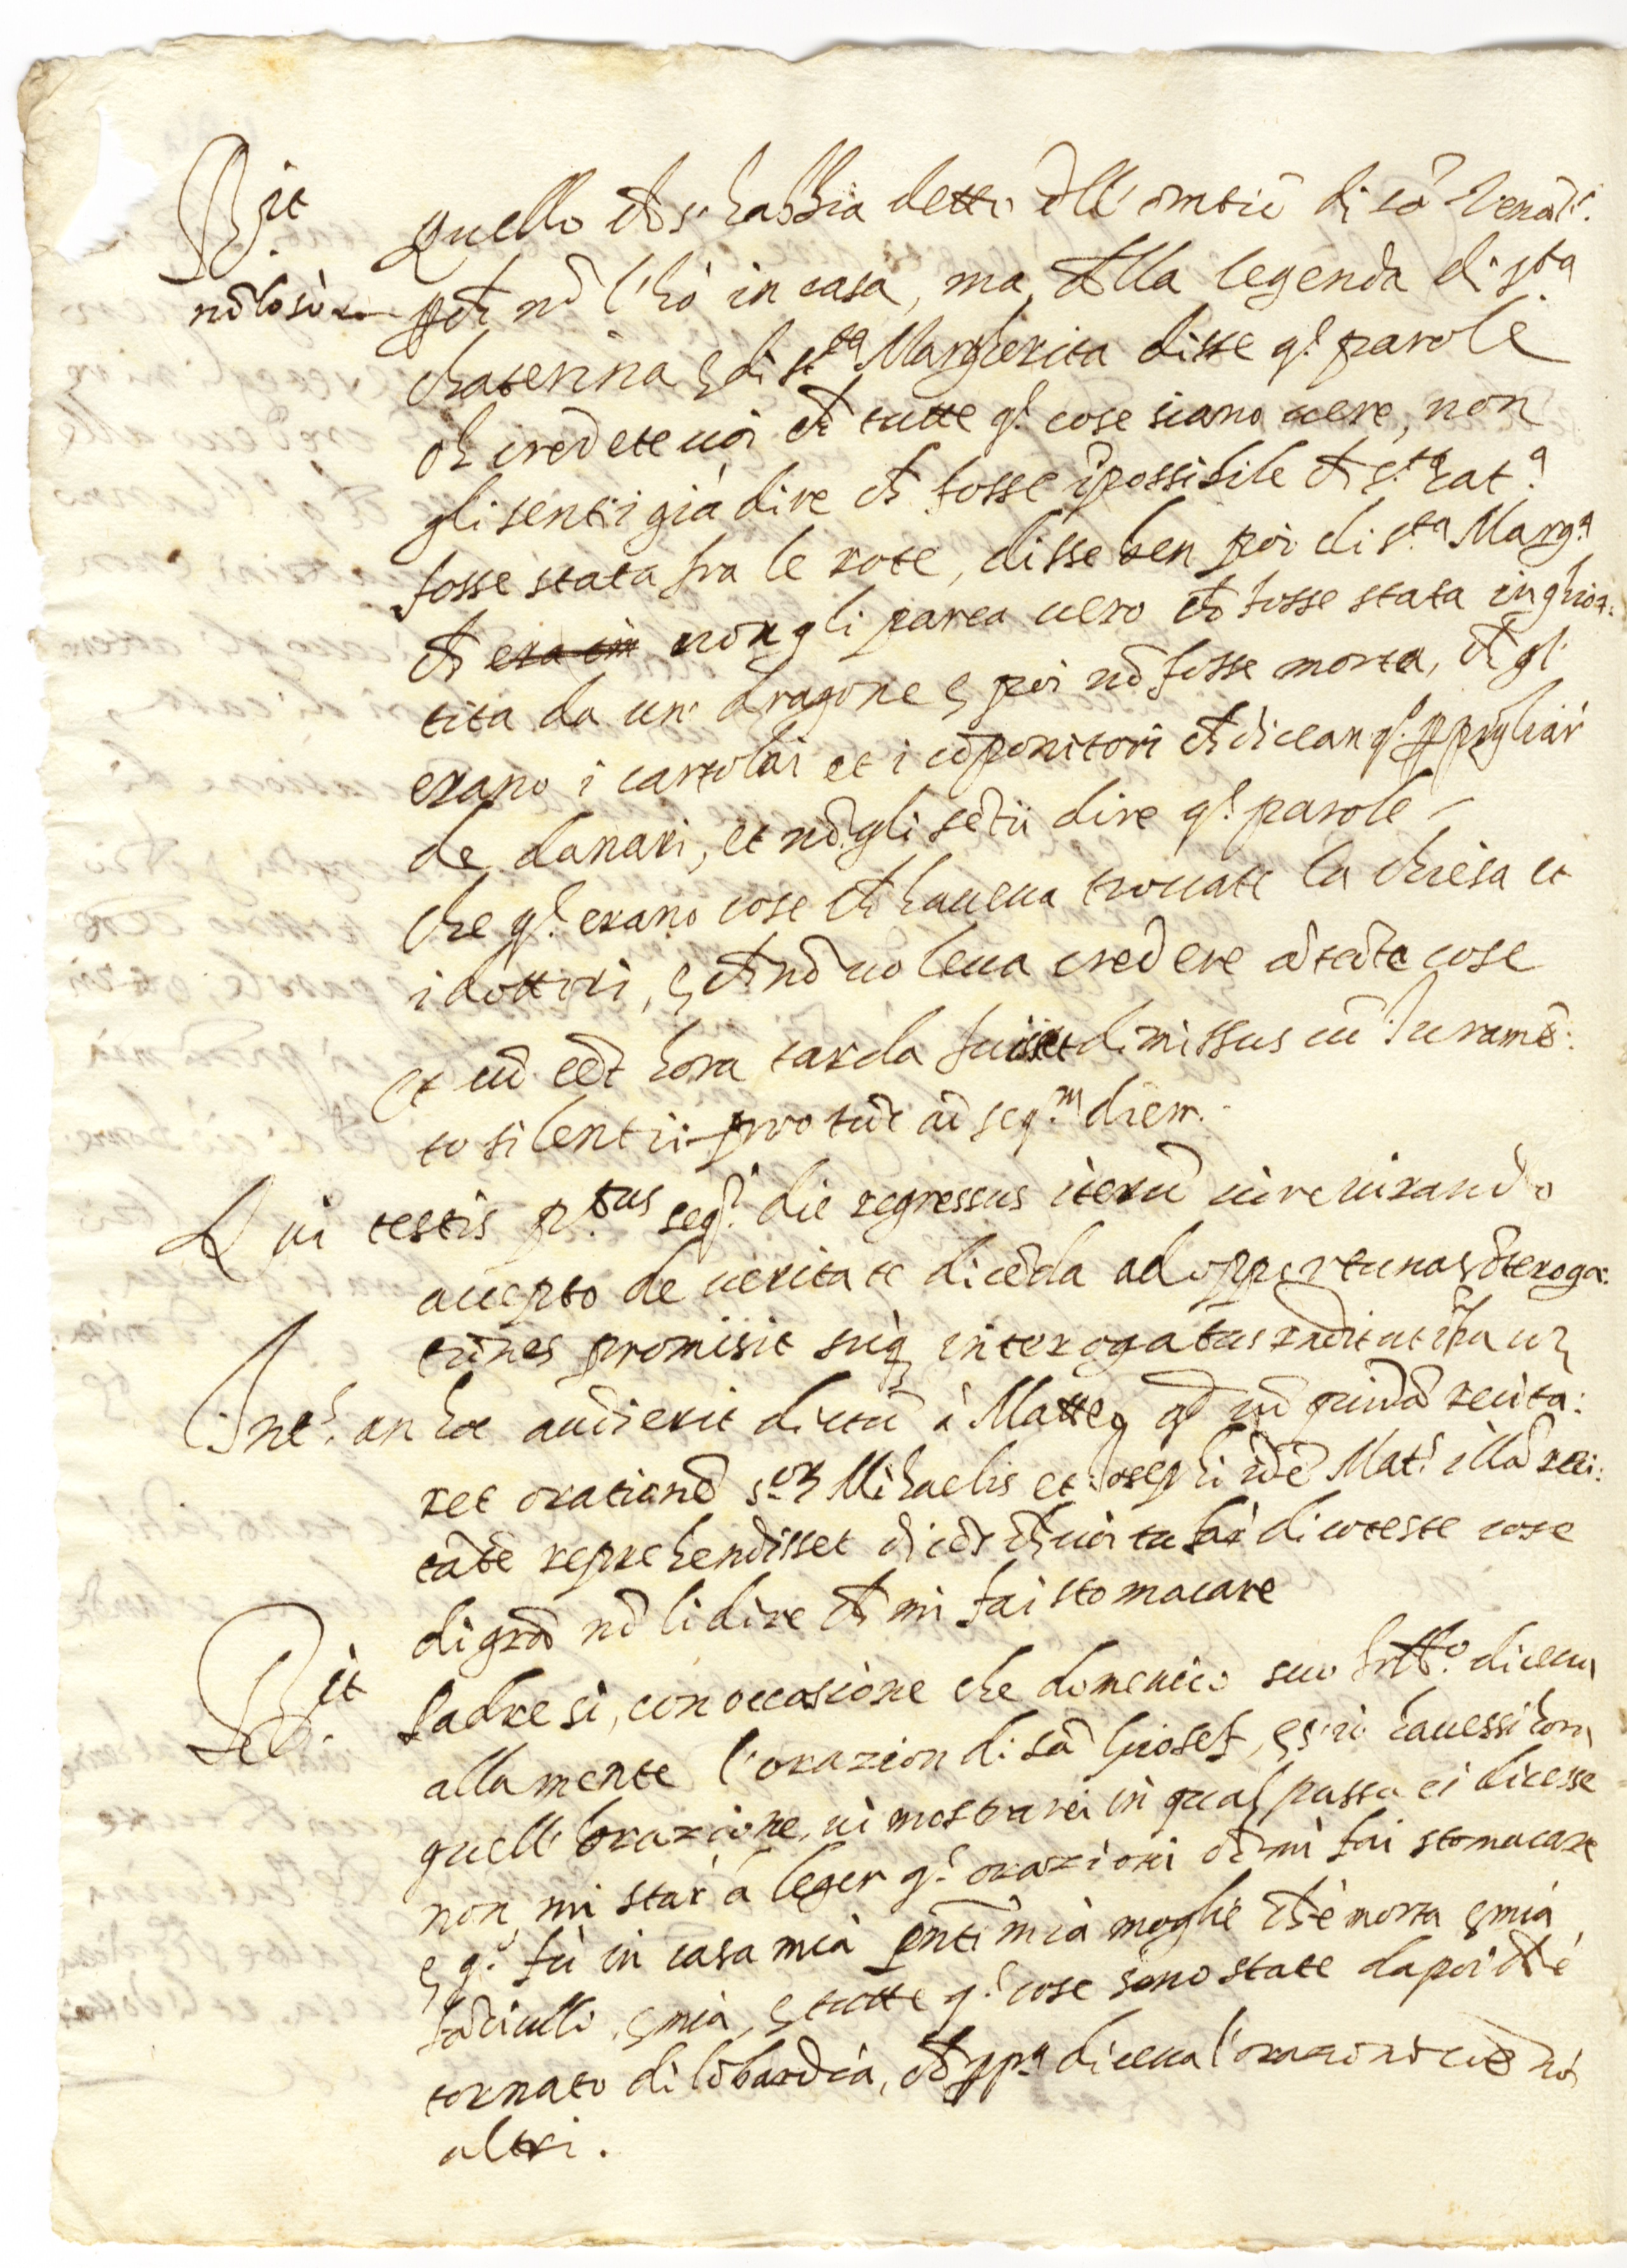 Rit quello ch s'habbia detto dll' oratiõ di sã Venã.
nõ lo sò pch nõ l'hò in casa, ma dlla legenda di s.ta
chaterina e di s.ta Margherita disse q.e parole
oh credete uoi ch tutte q.e cose siano uere, non
gli senti già dire ch fosse ĩpossibile ch s.ta Cat.a
fosse stata fra le rote, disse ben poi di s.ta Marg.a
ch era in non gli parea uero ch fosse stata inghiot:
tita da un' dragone e poi nõ fosse morta, ch q.i
erano i cartolai et i cõponitori ch diceanq.o p pigliar
de danari, et nõ gli sẽtii dire q.e parole
che q.e erano cose ch haueua trouate la chiesa et
i dottori, e ch nõ uoleua credere a tãte cose
Et cũ eẽt hora tarda fuit dimissus cũ Iuramẽ:
to silentii pro tũc ad seq.m diem.
Qui testis p.tus seq.i die regressus iterũ iureiurando
accepto de ueritate dicẽda ad opportunas ĩteroga:
tiones promisit suiq interogatus
Int. an hoc audierit dictũ à Matteo qd cũ quidã recita:
ret orationẽ s.or Mihaelis et Iosephi idẽ Mat.s illã reci:
tãte reprehendisset dicẽs ch uoi tu far di coteste cose
di grã nõ li dire ch mi fai stomacare
Rit Padre si, con occasione che domenico suo frtllo diceua
alla mente l'orazion di sã Giosef, e s'io hauessi hora
quell' orazione, ui mostrarei in qual passo ei dicesse
non mi star à leger q.e orazioni ch mi fai stomacare
e q.o fù in casa mia pñti mia moglie ch è morta e mia
fãciulli e mia, e tutte q.e cose sono state dapoi ch è
tornato di lõbardia, ch pp.a diceua l'orazioni cõ noi
altri.